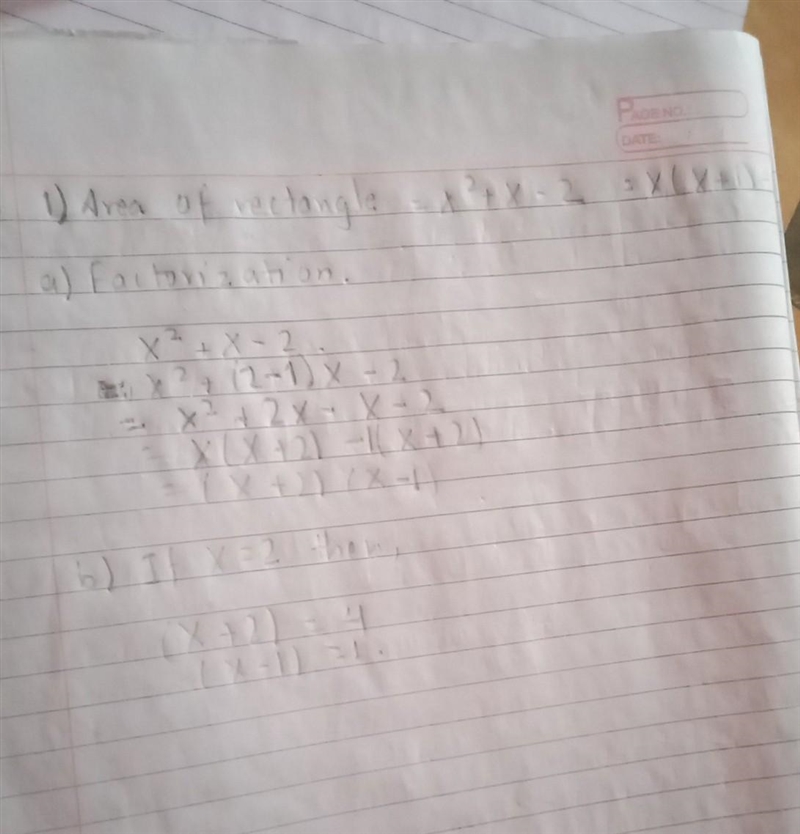 PAGE NO.:
DATE:
1) Area of rectangle = x² + x - 2 = x(x+1)-
a) Factorization.
x² + x - 2.
= x² + (2-1)x - 2
= x² + 2x - x - 2
= x(x+2) -1(x+2)
= (x+2) (x-1)
b) If x=2 then,
(x+2) = 4
(x-1) = 1.